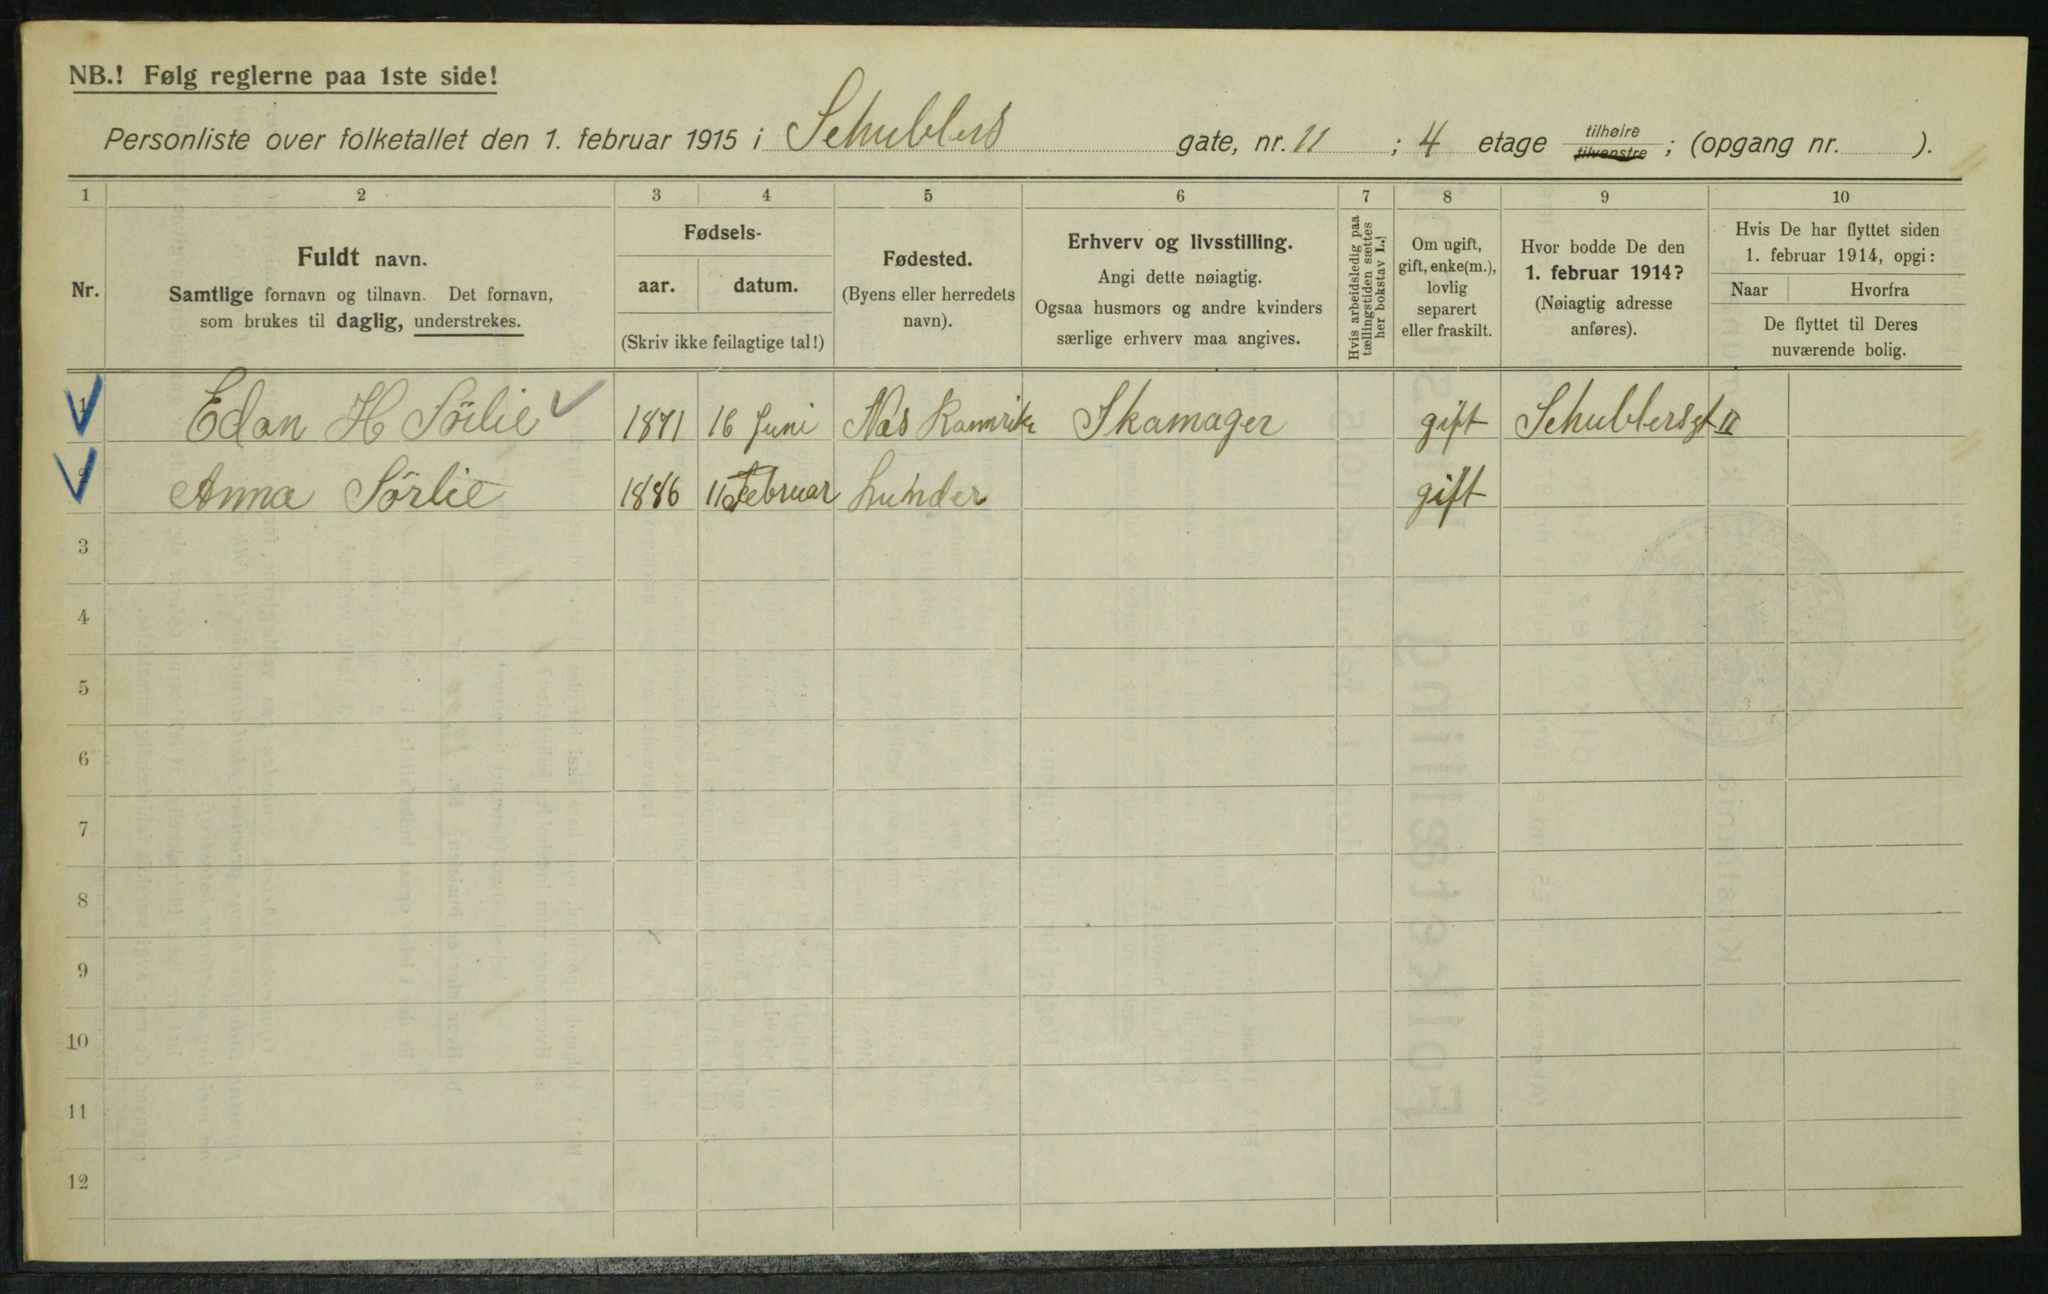 NB.! Følg reglerne paa 1ste side!
Personliste over folketallet den 1. februar 1915 i Schubblers gate, nr. 11 ; 4 etage tilhøire tilvenstre ; (opgang nr. ).
1 2 3 4 5 6 7 8 9 10
Nr.
Fuldt navn.
Samtlige fornavn og tilnavn. Det fornavn,
som brukes til daglig, understrekes.
Fødsels-
aar. datum.
(Skriv ikke feilagtige tal!)
Fødested.
(Byens eller herredets
navn).
Erhverv og livsstilling.
Angi dette nøiagtig.
Ogsaa husmors og andre kvinders
særlige erhverv maa angives.
Hvis arbeidsledig paa
tællingstiden sættes
her bokstav L.!
Om ugift,
gift, enke(m.),
lovlig
separert
eller fraskilt.
Hvor bodde De den
1. februar 1914?
(Nøiagtig adresse
anføres).
Hvis De har flyttet siden
1. februar 1914, opgi:
Naar Hvorfra
De flyttet til Deres
nuværende bolig.
1 Edan H Sörlie 1871 16 Juni Nas Skamager gift Schubblersgt 11
2 Anna Sörlie 1886 11 Februar Lunder gift
3
4
5
6
7
8
9
10
11
12